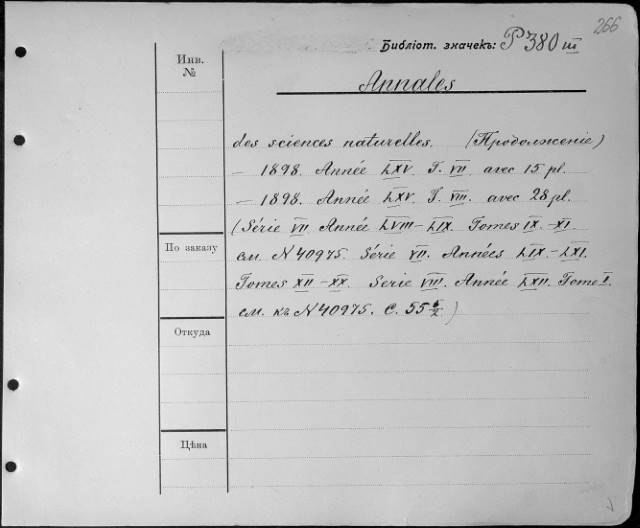 266
Библіот. значекъ: P 380 III
Инв.
№
Annales
des sciences naturelles. (Продолженіе)
— 1898. Année LXV. T. VII. avec 15 pl.
— 1898. Année LXV. T. VIII. avec 28 pl.
(Série VII Année LVIII–LIX. Tomes IX.–XI.
см. N 40975. Série VII. Années LIX.–LXI.
Tomes XII–XX. Serie VIII. Année LXII. Tome I.
см. къ N 40975. С. 55 /2)
По заказу
Откуда
Цѣна